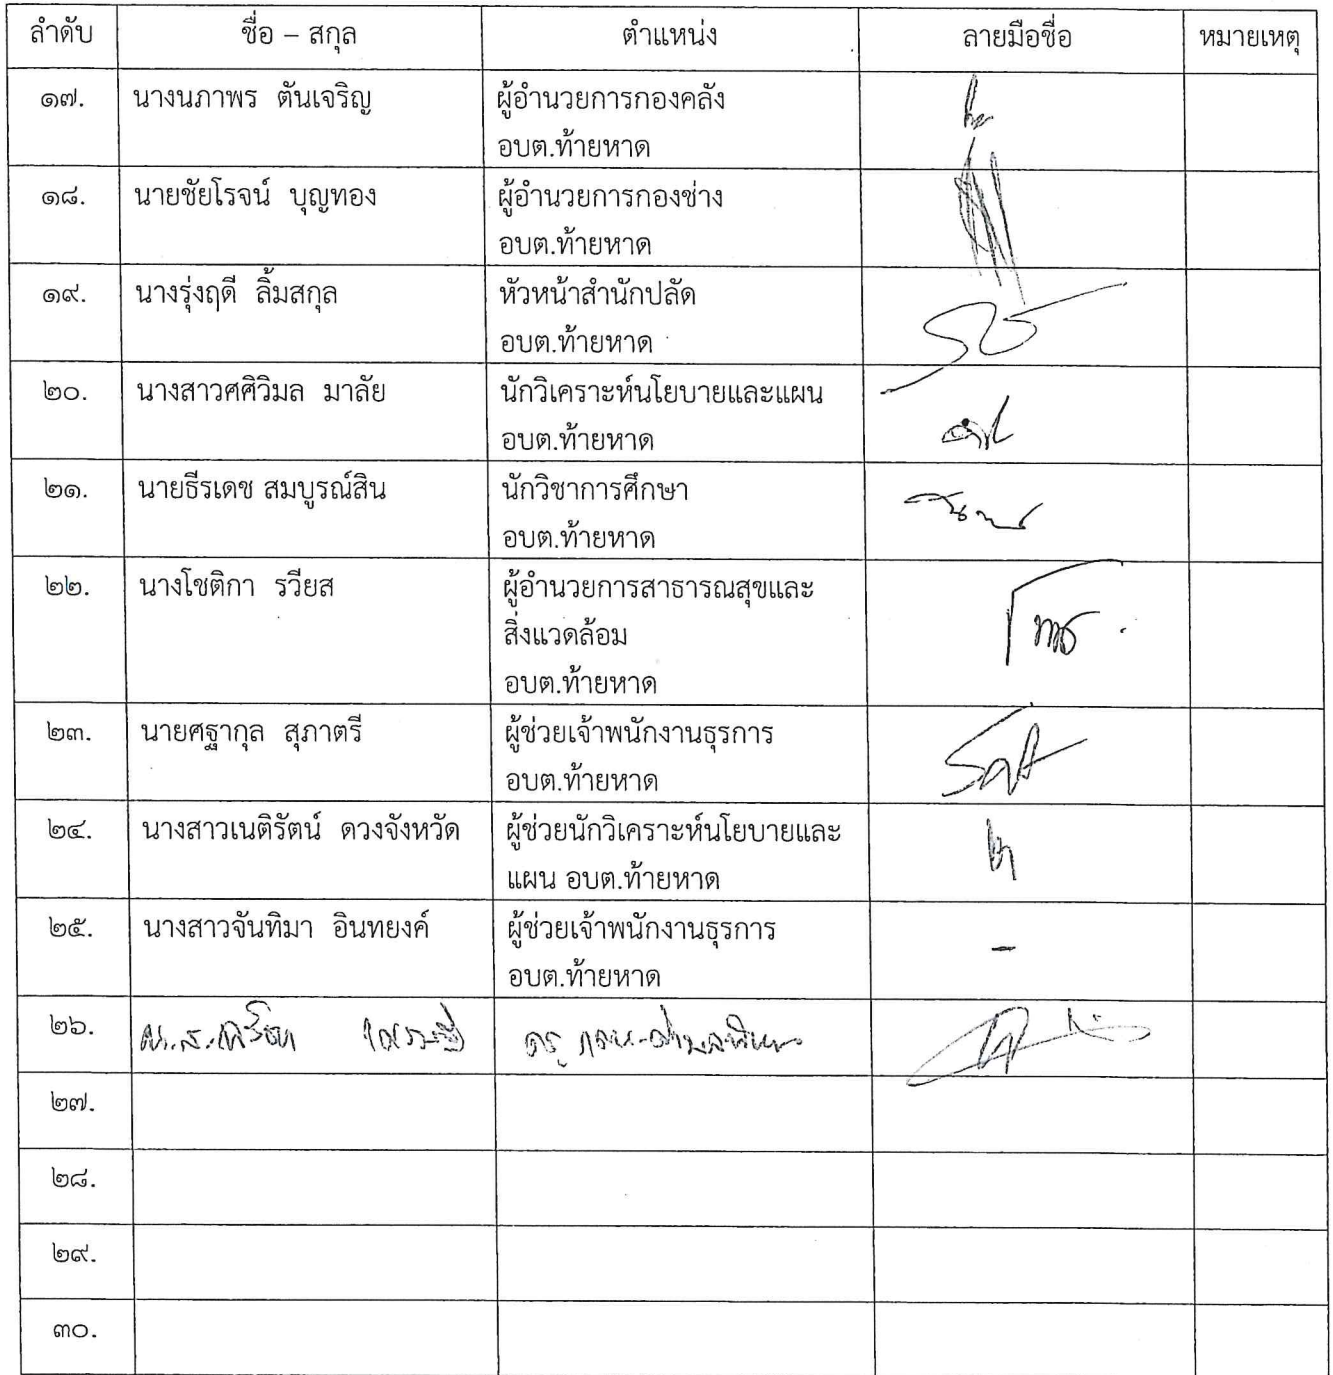 ลำดับ ชื่อ – สกุล ตำแหน่ง ลายมือชื่อ หมายเหตุ
๑๗. นางนภาพร ตันเจริญ ผู้อำนวยการกองคลัง
อบต.ท้ายหาด
๑๘. นายชัยโรจน์ บุญทอง ผู้อำนวยการกองช่าง
อบต.ท้ายหาด
๑๙. นางรุ่งฤดี ลิ้มสกุล หัวหน้าสำนักปลัด
อบต.ท้ายหาด
๒๐. นางสาวศศิวิมล มาลัย นักวิเคราะห์นโยบายและแผน
อบต.ท้ายหาด
๒๑. นายธีรเดช สมบูรณ์สิน นักวิชาการศึกษา
อบต.ท้ายหาด
๒๒. นางโชติกา รวียส ผู้อำนวยการสาธารณสุขและ
สิ่งแวดล้อม
อบต.ท้ายหาด
๒๓. นายศฐากุล สุภาตรี ผู้ช่วยเจ้าพนักงานธุรการ
อบต.ท้ายหาด
๒๔. นางสาวเนติรัตน์ ดวงจังหวัด ผู้ช่วยนักวิเคราะห์นโยบายและ
แผน อบต.ท้ายหาด
๒๕. นางสาวจันทิมา อินทยงค์ ผู้ช่วยเจ้าพนักงานธุรการ –
อบต.ท้ายหาด
๒๖. น.ส. ครู
๒๗.
๒๘.
๒๙.
๓๐.